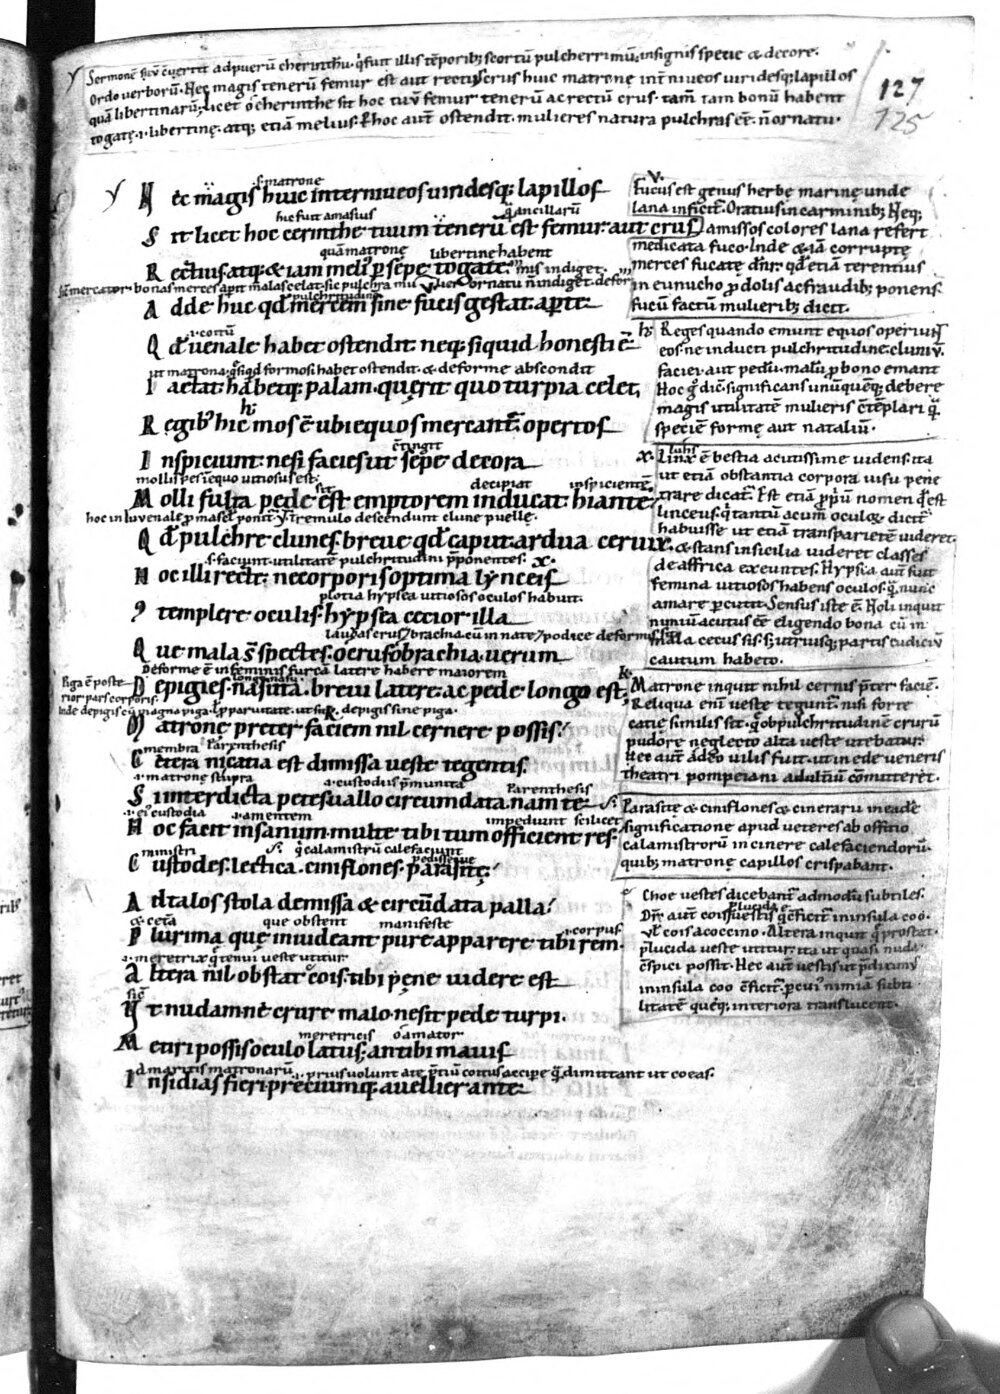 Sermonē suū c̄uertit ad puerū cherinthū. q̇ fuit illis tēporib; scortū pulcherrimū. insignis specie & decore.
Ordo uerborū. Nec magis tenerū femur est aut rectius crus huic matronę int̄ niueos uiridesq; lapillos
quā libertinarū. Licet o cherinthe sit hoc tuū femur tenerū ac rectū crus. tam̄ tam bonū habent
togatę .i. libertinę. atq; etiam melius. & hoc aut̄ ostendit. mulieres natura pulchras eē. n̄ ornatu.
127
125
s. matrone
N ec magis huic inter niueos uiridesq; lapillos
hic fuit amasius q̇ ancillarū
S it licet hoc cerinthe tuum tenerū est femur. aut crus
quā matronę libertine habent
R ectius. atq; & iam meli' p sepe togatę.
mercator bonas merces aperit malas celat. sic pulchra mulier ornatu n̄ indiget. deformis indiget.
pulchritudinē
A dde huc qđ mercem sine fucis gestat. aperte
.i. coitū
Q đ uenale habet ostendit. neq; siquid honesti ē
ut matrona. q̇ siqđ formosi habet ostendit. & deforme abscondit
I actat. habetq; palam. querit quo turpia celet,
h:
R egib' hic mos ē ubi equos mercant̄. opertos
c̄tingit
I nspiciunt. nesi facies ut sępe decora
mollis pes in equo uitiosus est. sit decipiat inspicientē.
M olli fulta pede est emptorem inducat hiantē
hoc in Iuvenale p masc̄l ponit̄ ut tremulo descendunt clune puelle.
Q đ pulchre clunes. breue qđ caput. ardua ceruix.
s. faciunt. utilitatē pulchritudini p̄ponentes. x.
H oc illi recte. ne corporis optima lynceis
plotia hypsea uitiosos oculos habuit.
C templere oculis. hypsea cecior. illa
laudas crus / brachia. cū in nate / podice deformis sit
Q ue mala s̄ spectes. o crus o brachia. uerum
Deforme ē in feminis furcā latere habere maiorem
longo nasu
D epigies. nasuta. breui latere. ac pede longo est.
Piga ē poste
rior pars corporis.
Inde depigis cū magna piga. & p paruitate. ut sit depigis sine piga.
k.
M atronę preter faciem nil cernere possis.
membra Parenthesis
C etera ni catia est dimissa ueste tegentis.
.i. matrone stupra .i. custodus p̄munita Parenthesis
S i interdicta petes uallo circumdata. nam te
.i. ei custodia .i. amentem impediunt scilicet
H oc facit insanum. multe tibi tum officient res.
ministri q̇ calamistrū calefaciunt pedisseque
C ustodes. lectica. ciniflones. parasitę.
A d talos stola demissa & circūdata palla.
& cet̄a que obstent manifeste .i. corpus
P lurima que inuideant pure apparere tibi rem.
.i. meretrix q̇ tenui ueste utitur
A ltera nil obstat. cois. tibi pęne uidere est
sic̄
U t nudam. ne crure malo. ne sit pede turpi.
meretricis o amator
M etiri possis oculo latus. an tibi mauis
a maritis matronarū .i. prius uolunt ate p̄tiū coitus accipe q̇ dimittant ut coeas.
I nsidias fieri preciumq; auellier ante
v.
Fucus est genus herbę marinę. unde
lana inficit̄. Oratius in carminib; Neq;
amissos colores lana refert
medicata fuco. Inde & iā corruptę
merces fucatę dn̄r. qđ etiā terentius
in eunucho p dolis ac fraudib; ponens.
fucū factū mulierib; dicit.
h: Reges quando emunt equos operiunt
eos. ne inducti pulchritudine cluniū
faciei aut pedū. malū p bono emant
Hoc g dic̄. significans unūquēq; debere
magis utilitatē mulieris c̄templari q̄
speciem formę aut nataliū.
x. Linx ē bestia acutissime uidens. ita
ut etiā obstantia corpora uisu pene
trare dicat̄. Est etiā p̄priū nomen. qđ est
linceus. q̇ tantū acum̄ oculoꝝ dicit̄
habuisse ut etiā transparietē uideret
& stans in sicilia uideret classes
de affrica exeuntes. Hypsea aut̄ fuit
femina uitiosos habens oculos. q̄ nunc
amare p̄cutit. Sensus iste ē. Noli inquit
nimiū acutus eē eligendo bona cū in
mala cecus sis. s; utriusq; partis iudiciū
cautum habeto.
Matronę inquit nihil cernis p̄ter faciē.
Reliqua enī ueste tegunt̄. nisi forte
catie similis sit. q̄ ob pulchritudinē crurū
pudore neglecto alta ueste utebatur.
Hec aut̄ adeo uilis fuit. ut in ede ueneris
theatri pompeiani adult̄iū c̄mitteret.
Parasitę & ciniflones & cinerarii in eadē
significatione apud ueteres ab officio
calamistrorū in cinere calefaciendorū.
quib; matronę capillos crispabant.
Choe uestes dicebant̄ admodū subtiles.
Dn̄r aut̄ cois uestis q̄ efficit̄ in insula coo.
ul̄ cois a coccino. Altera inquit q̄ prostat.
p̄lucida ueste utitur. ita ut quasi nuda
c̄spici possit. Hec aut̄ uestis
in insula coo c̄ficit̄. p cui nimia subti
litatē queq; interiora translucent.